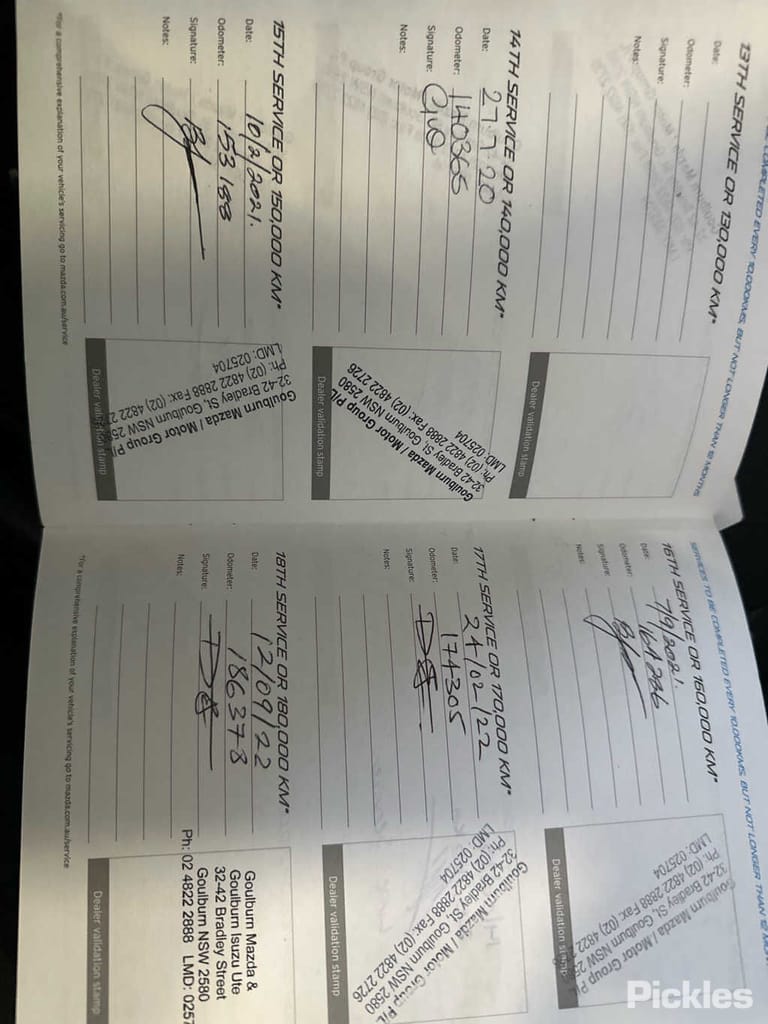 SERVICES TO BE COMPLETED EVERY 10,000KMS, BUT NOT LONGER THAN 12 MONTHS
13TH SERVICE OR 130,000 KM*
Date:
Odometer:
Signature:
Notes:
Dealer validation stamp
14TH SERVICE OR 140,000 KM*
Date: 27.7.20
Odometer: 140365
Signature:
Notes:
Goulburn Mazda / Motor Group P/L
32-42 Bradley St, Goulburn NSW 2580
Ph: (02) 4822 2888 Fax: (02) 4822 2726
LMD: 025704
Dealer validation stamp
15TH SERVICE OR 150,000 KM*
Date: 10/2/2021.
Odometer: 153188
Signature:
Notes:
Goulburn Mazda / Motor Group P/L
32-42 Bradley St, Goulburn NSW 25
Ph: (02) 4822 2888 Fax: (02) 4822 2
LMD: 025704
Dealer validation stamp
*For a comprehensive explanation of your vehicle's servicing go to mazda.com.au/service
SERVICES TO BE COMPLETED EVERY 10,000KMS, BUT NOT LONGER THAN 12 MON
16TH SERVICE OR 160,000 KM*
Date: 7/9/2021.
Odometer:
Signature:
Notes:
Goulburn Mazda / Motor Group P/L
32-42 Bradley St, Goulburn NSW 25
Ph: (02) 4822 2888 Fax: (02) 4822
LMD: 025704
Dealer validation stamp
17TH SERVICE OR 170,000 KM*
Date: 24/02/22
Odometer: 174305
Signature:
Notes:
Goulburn Mazda / Motor Group P/L
32-42 Bradley St, Goulburn NSW 2580
Ph: (02) 4822 2888 Fax: (02) 4822 2726
LMD: 025704
Dealer validation stamp
18TH SERVICE OR 180,000 KM*
Date: 12/09/22
Odometer: 186378
Signature:
Notes:
Goulburn Mazda &
Goulburn Isuzu Ute
32-42 Bradley Street
Goulburn NSW 2580
Ph: 02 4822 2888 LMD: 0257
Dealer validation stamp
*For a comprehensive explanation of your vehicle's servicing go to mazda.com.au/service
Pickles